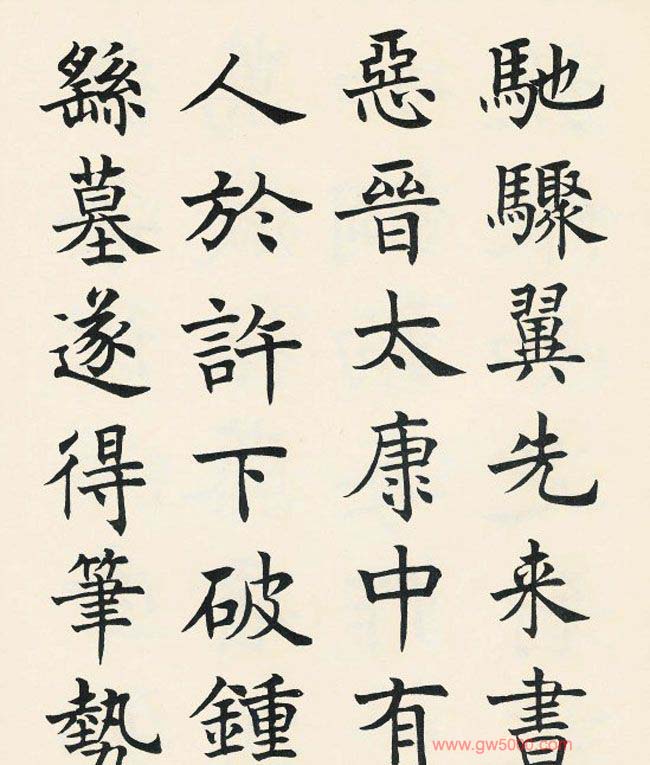 馳驟翼先来書
惡晉太康中有
人於許下破鍾
繇墓遂得筆勢
www.gw5000.com